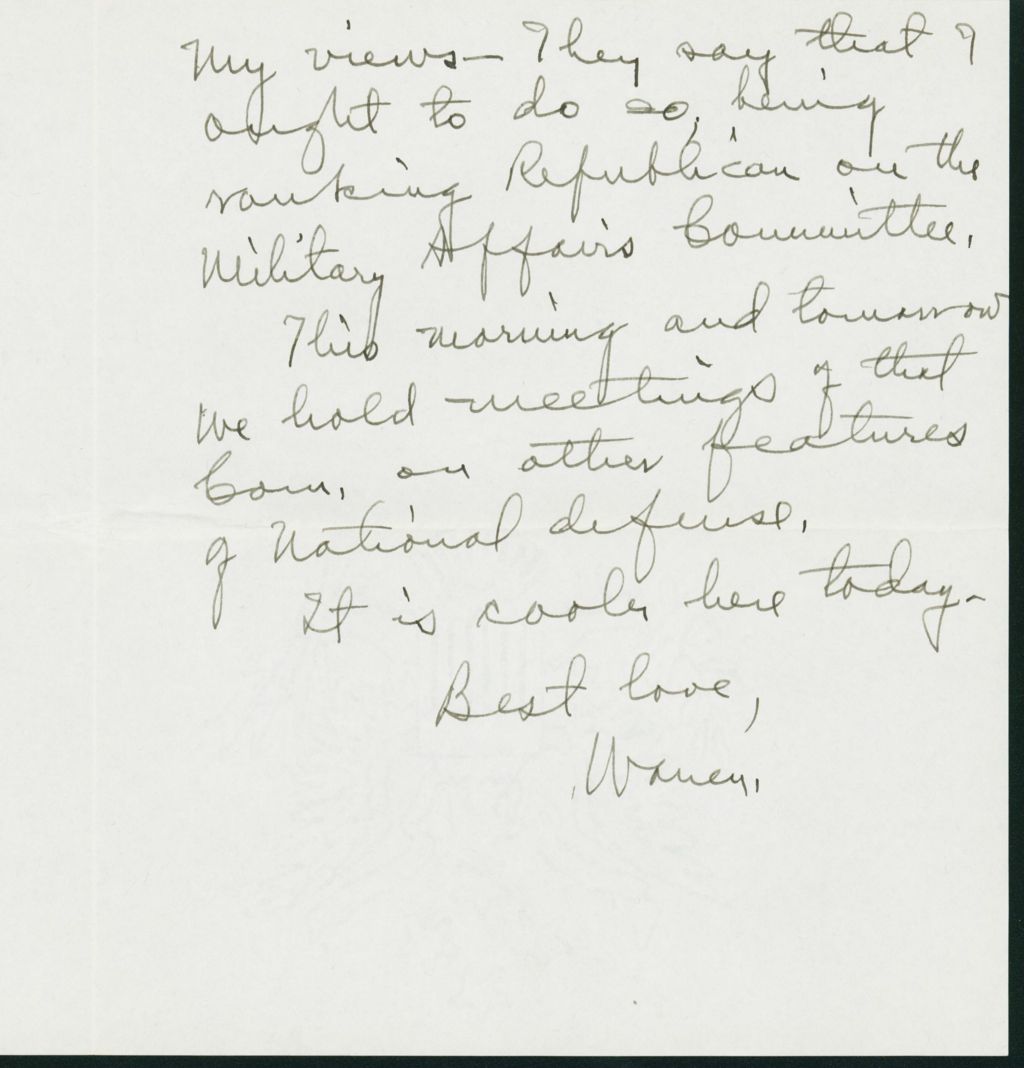 my views— They say that I
ought to do so, being
ranking Republican on the
Military Affairs Committee.
This morning and tomorrow
we hold meetings of that
Com. on other features
of National defense.
It is cooler here today—
Best love,
Warren.